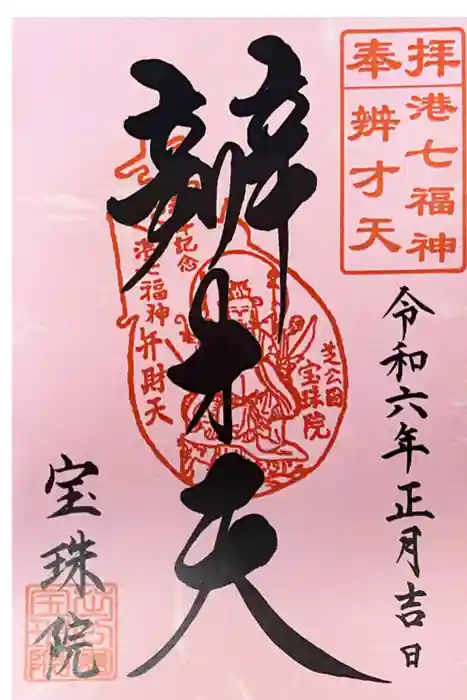 奉拝
港七福神
辨才天
令和六年正月吉日
辨才天
記念
港七福神
弁財天
芝公園
宝珠院
宝珠院